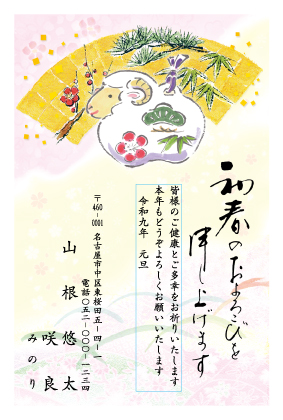 初春のおよろこびを
申し上げます
皆様のご健康とご多幸をお祈りいたします
本年もどうぞよろしくお願いいたします
令和九年　元旦
〒460-0001 名古屋市中区東桜田五-四-一
電話〇五二-〇〇〇-一二三四
山根悠太
咲良
みのり